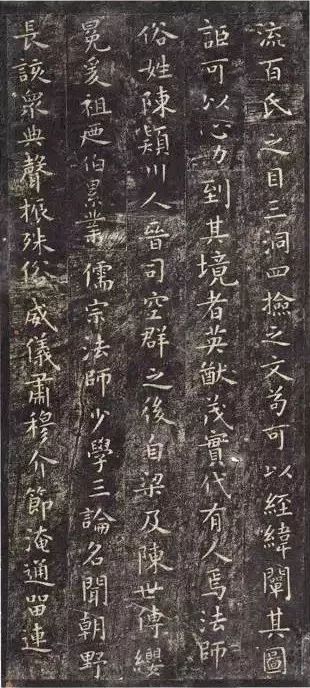 流百氏之目三洞四撿之文苟可以經緯闡其圖
詎可以心力到其境者英猷茂實代有人焉法師
俗姓陳潁川人晉司空群之後自梁及陳世傳纓
冕爰祖伯累業儒宗法師少學三論名聞朝野
長該衆典聲振殊俗威儀肅穆介節淹通留連